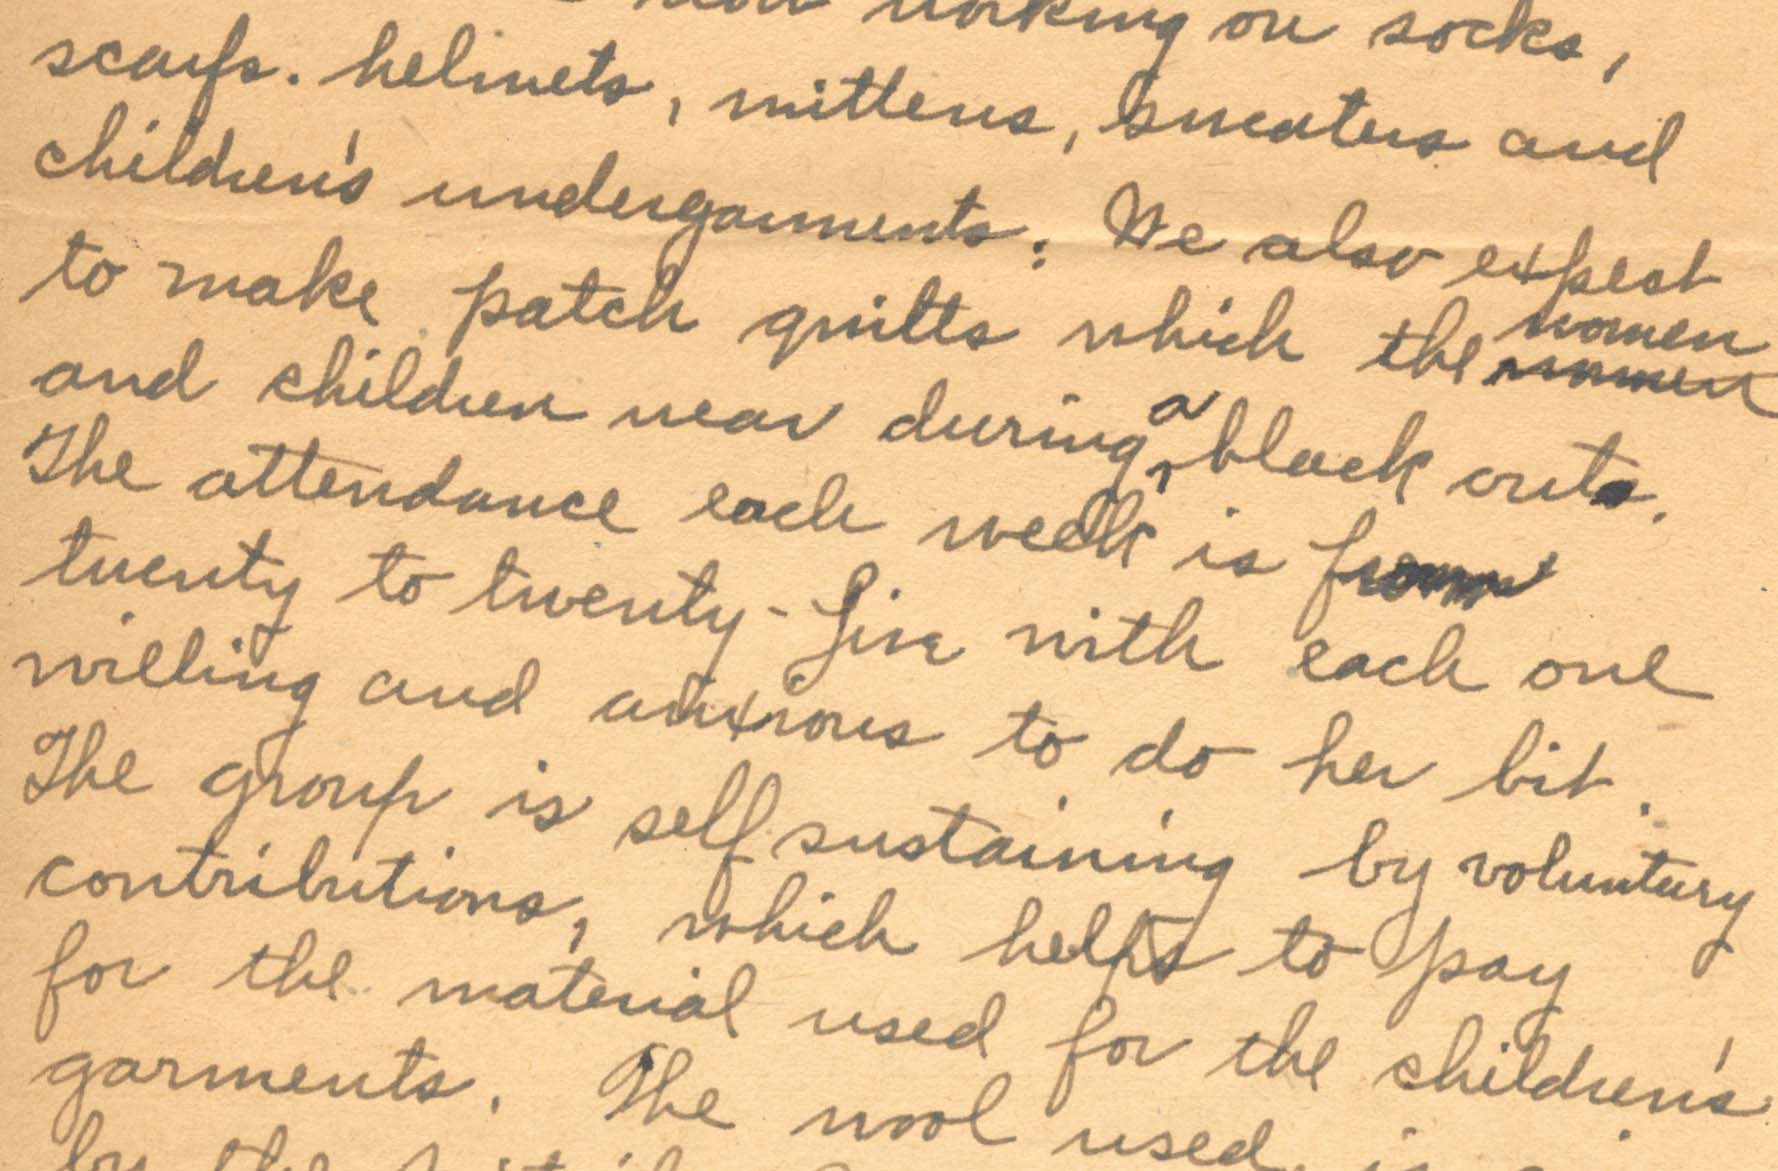 now working on socks,
scarfs. helmets, mittens, sweaters and
children's undergarments. We also expect
to make patch quilts which the women
and children wear during a black out.
The attendance each week is from
twenty to twenty-five with each one
willing and anxious to do her bit.
The group is self sustaining by voluntary
contributions, which helps to pay
for the material used for the children's
garments. The wool used is
by the